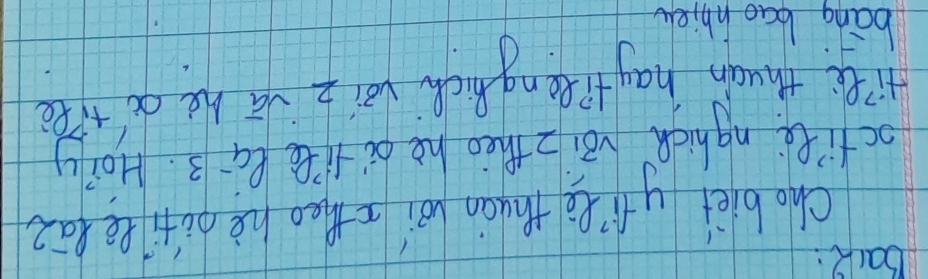 Bài 2:
Cho biết y tỉ lệ thuận với x theo hệ số tỉ lệ là 2
x tỉ lệ nghịch với z theo hệ số tỉ lệ là 3. Hỏi y
tỉ lệ thuận hay tỉ lệ nghịch với z và hệ số tỉ lệ
bằng bao nhiêu